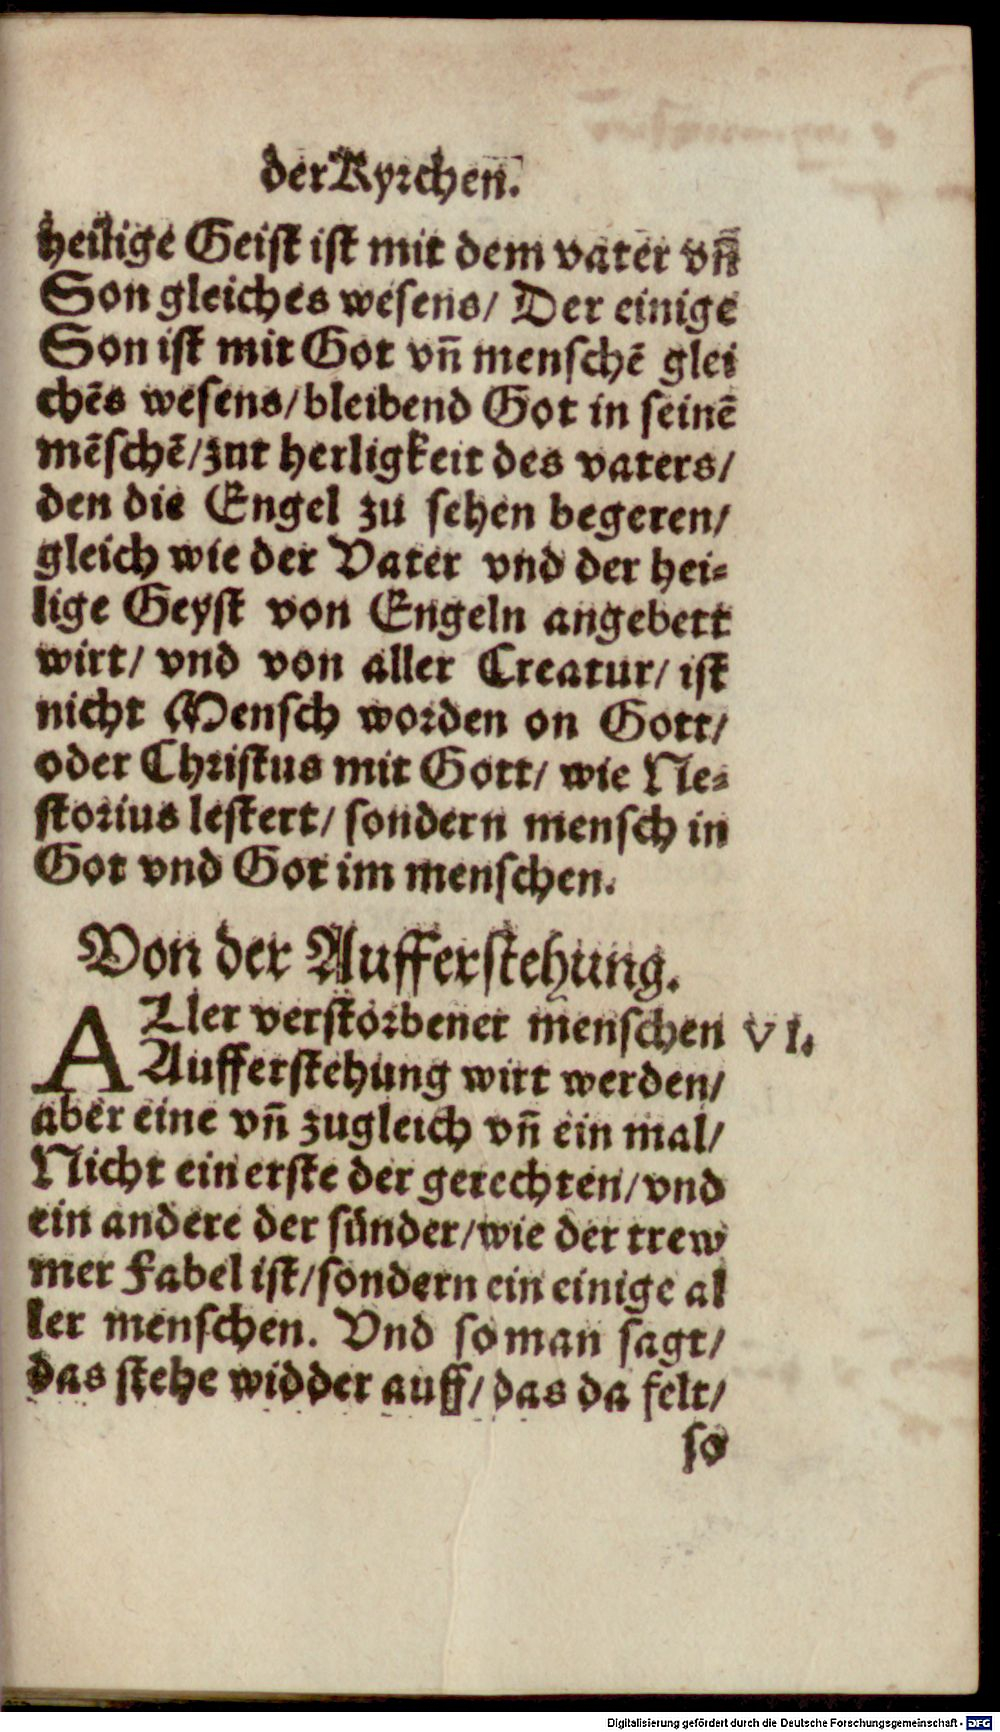 der Kyrchen.
heilige Geist ist mit dem vater vn̄
Son gleiches wesens/ Der einige
Son ist mit Got vn̄ menschē glei
chēs wesens/ bleibend Got in seinē
mēschē/ zur herligkeit des vaters/
den die Engel zu sehen begeren/
gleich wie der Vater vnd der hei⸗
lige Geyst von Engeln angebett
wirt/ vnd von aller Creatur/ ist
nicht Mensch worden on Gott/
oder Christus mit Gott/ wie Ne⸗
storius lestert/ sondern mensch in
Got vnd Got im menschen.
Von der Aufferstehung.
ALler verstorbener menschen VI.
Aufferstehung wirt werden/
aber eine vn̄ zugleich vn̄ ein mal/
Nicht ein erste der gerechten/ vnd
ein andere der sünder/ wie der trew
mer Fabel ist/ sondern ein einige al
ler menschen. Vnd so man sagt/
das stehe widder auff/ das da felt/
so
Digitalisierung gefördert durch die Deutsche Forschungsgemeinschaft - DFG